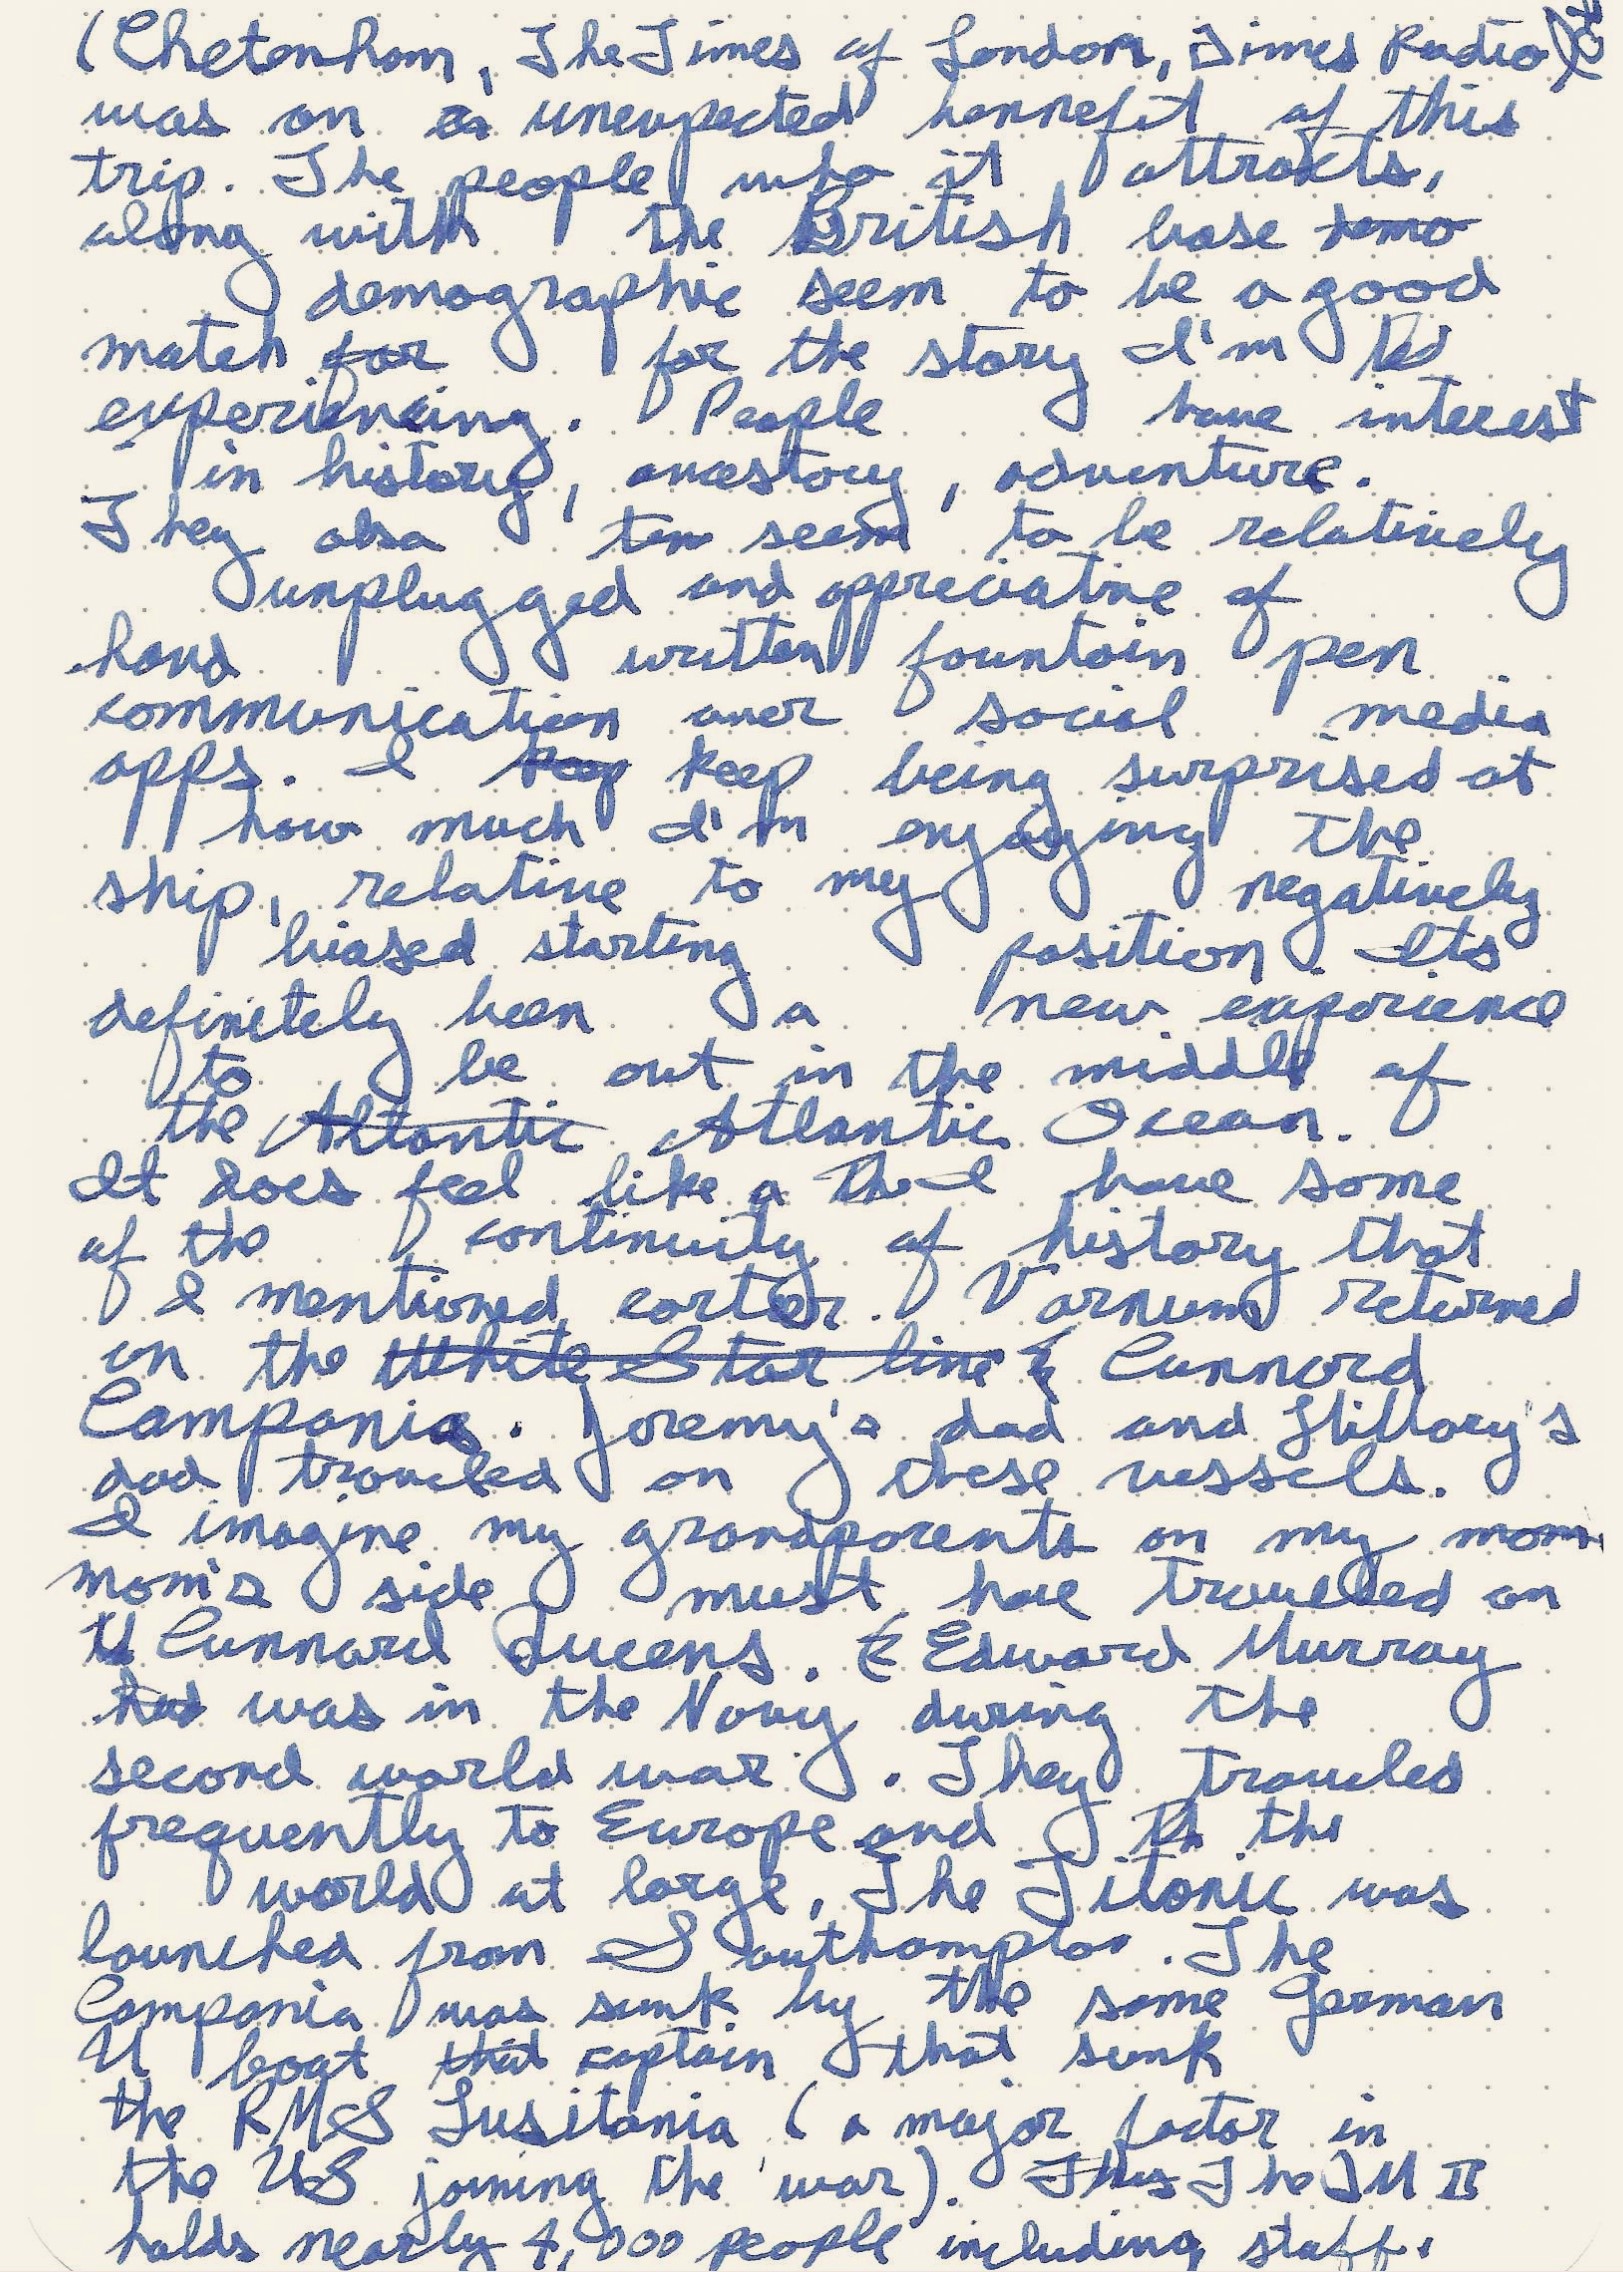 (Chetenham, The Times of London, Times Radio)
was an a unexpected bennefit of this
trip. The people who it attracts,
along with the British base demo
demographic seem to be a good
match for for the story I'm
experiencing. People have interest
in history, ancestory, adventure.
They also ten seem to be relatively
unplugged and appreciative of
hand written fountain pen
communication over social media
apps. I keep keep being surprised at
how much I'm enjoying the
ship, relative to my negatively
biased starting position. Its
definitely been a new experience
to be out in the middle of
the Altantic Atlantic Ocean.
It does feel like a the I have some
of the continuity of history that
I mentioned earlier. Varnum returned
on the White Star line & Cunnard
Campania. Jeremy's dad and Hillary's
dad traveled on these vessels.
I imagine my grandparents on my mom
mom's side must have travelled on
th Cunnard Queens. & Edward Murray
had was in the Navy during the
second world war. They traveled
frequently to Europe and th the
world at large. The Titanic was
launched from Southampton. The
Campania was sunk by the same German
U boat that captain that sunk
the RMS Lusitania (a major factor in
the US joining the war). This The QM II
holds nearly 4,000 people including staff.